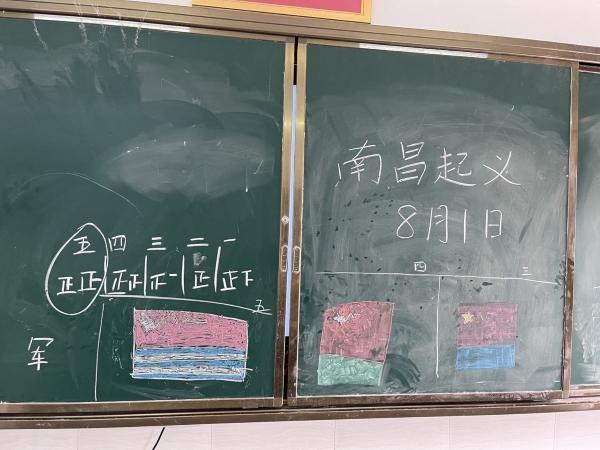 南昌起义
8月1日
五 四 三 二 一
正正 正正 正一 正 正下
四 三
五
军